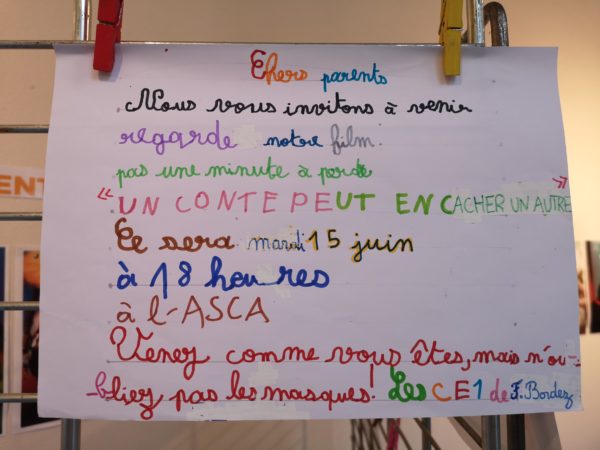 Chers parents
Nous vous invitons à venir
regarde notre film.
pas une minute à perdre
"UN CONTE PEUT EN CACHER UN AUTRE"
Ce sera mardi 15 juin
à 18 heures
à l-ASCA
Venez comme vous êtes, mais n'ou-
-bliez pas les masques! Les CE1 de F. Bordez
ENT